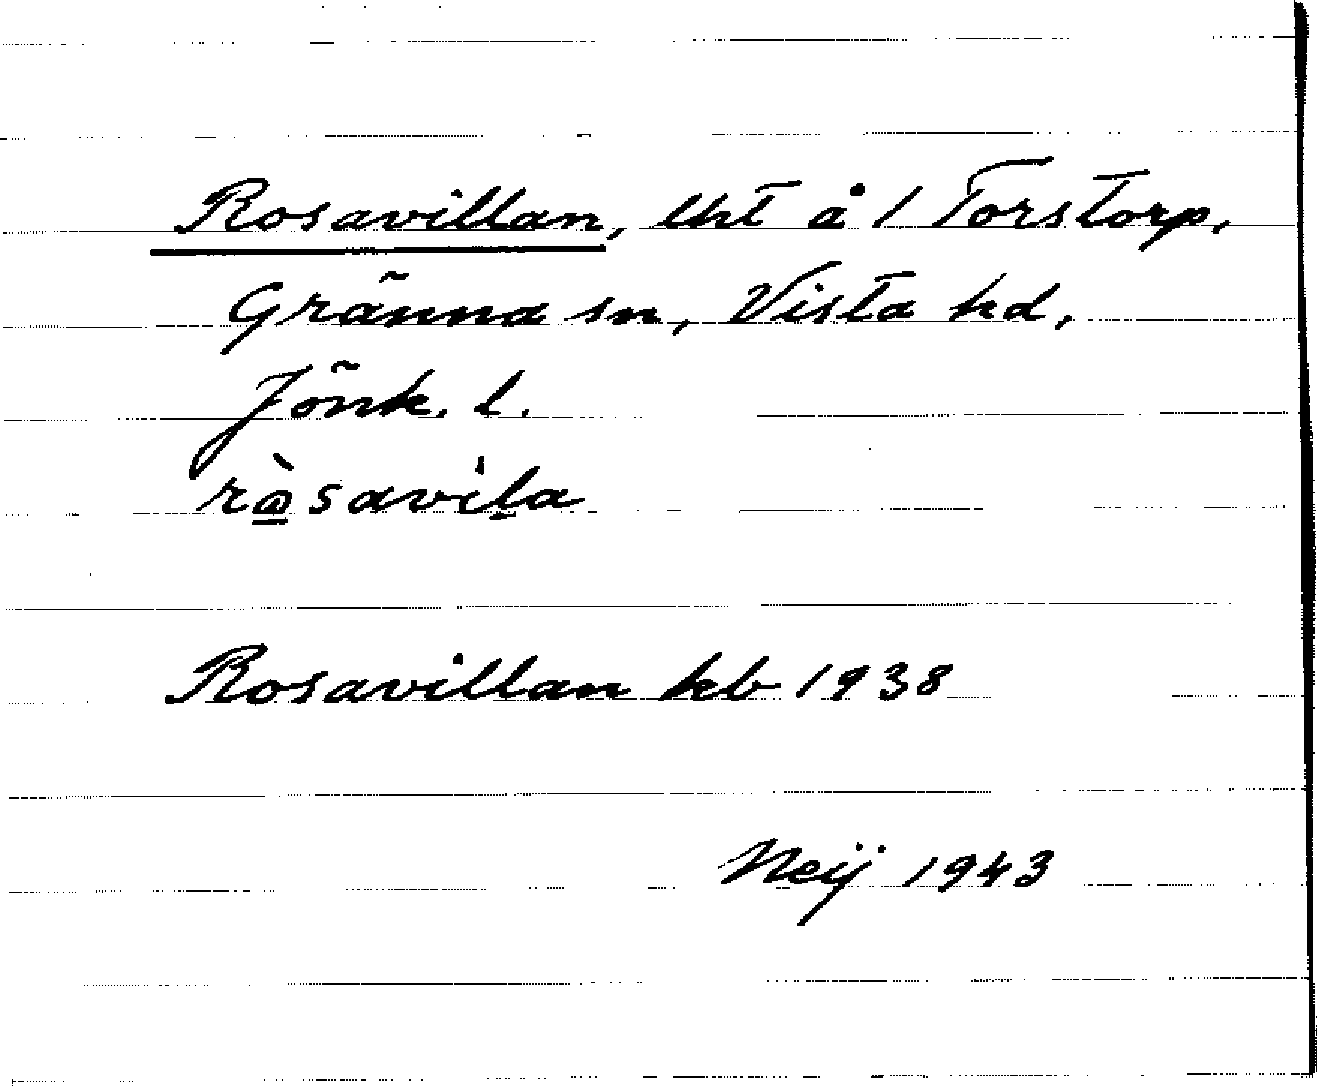 Rosavillan, lht å 1 Torstorp,
Gränna sn, Vista hd,
Jönk. l.
rò̲savi̍l̲a
Rosavillan kb 1938
Neij 1943